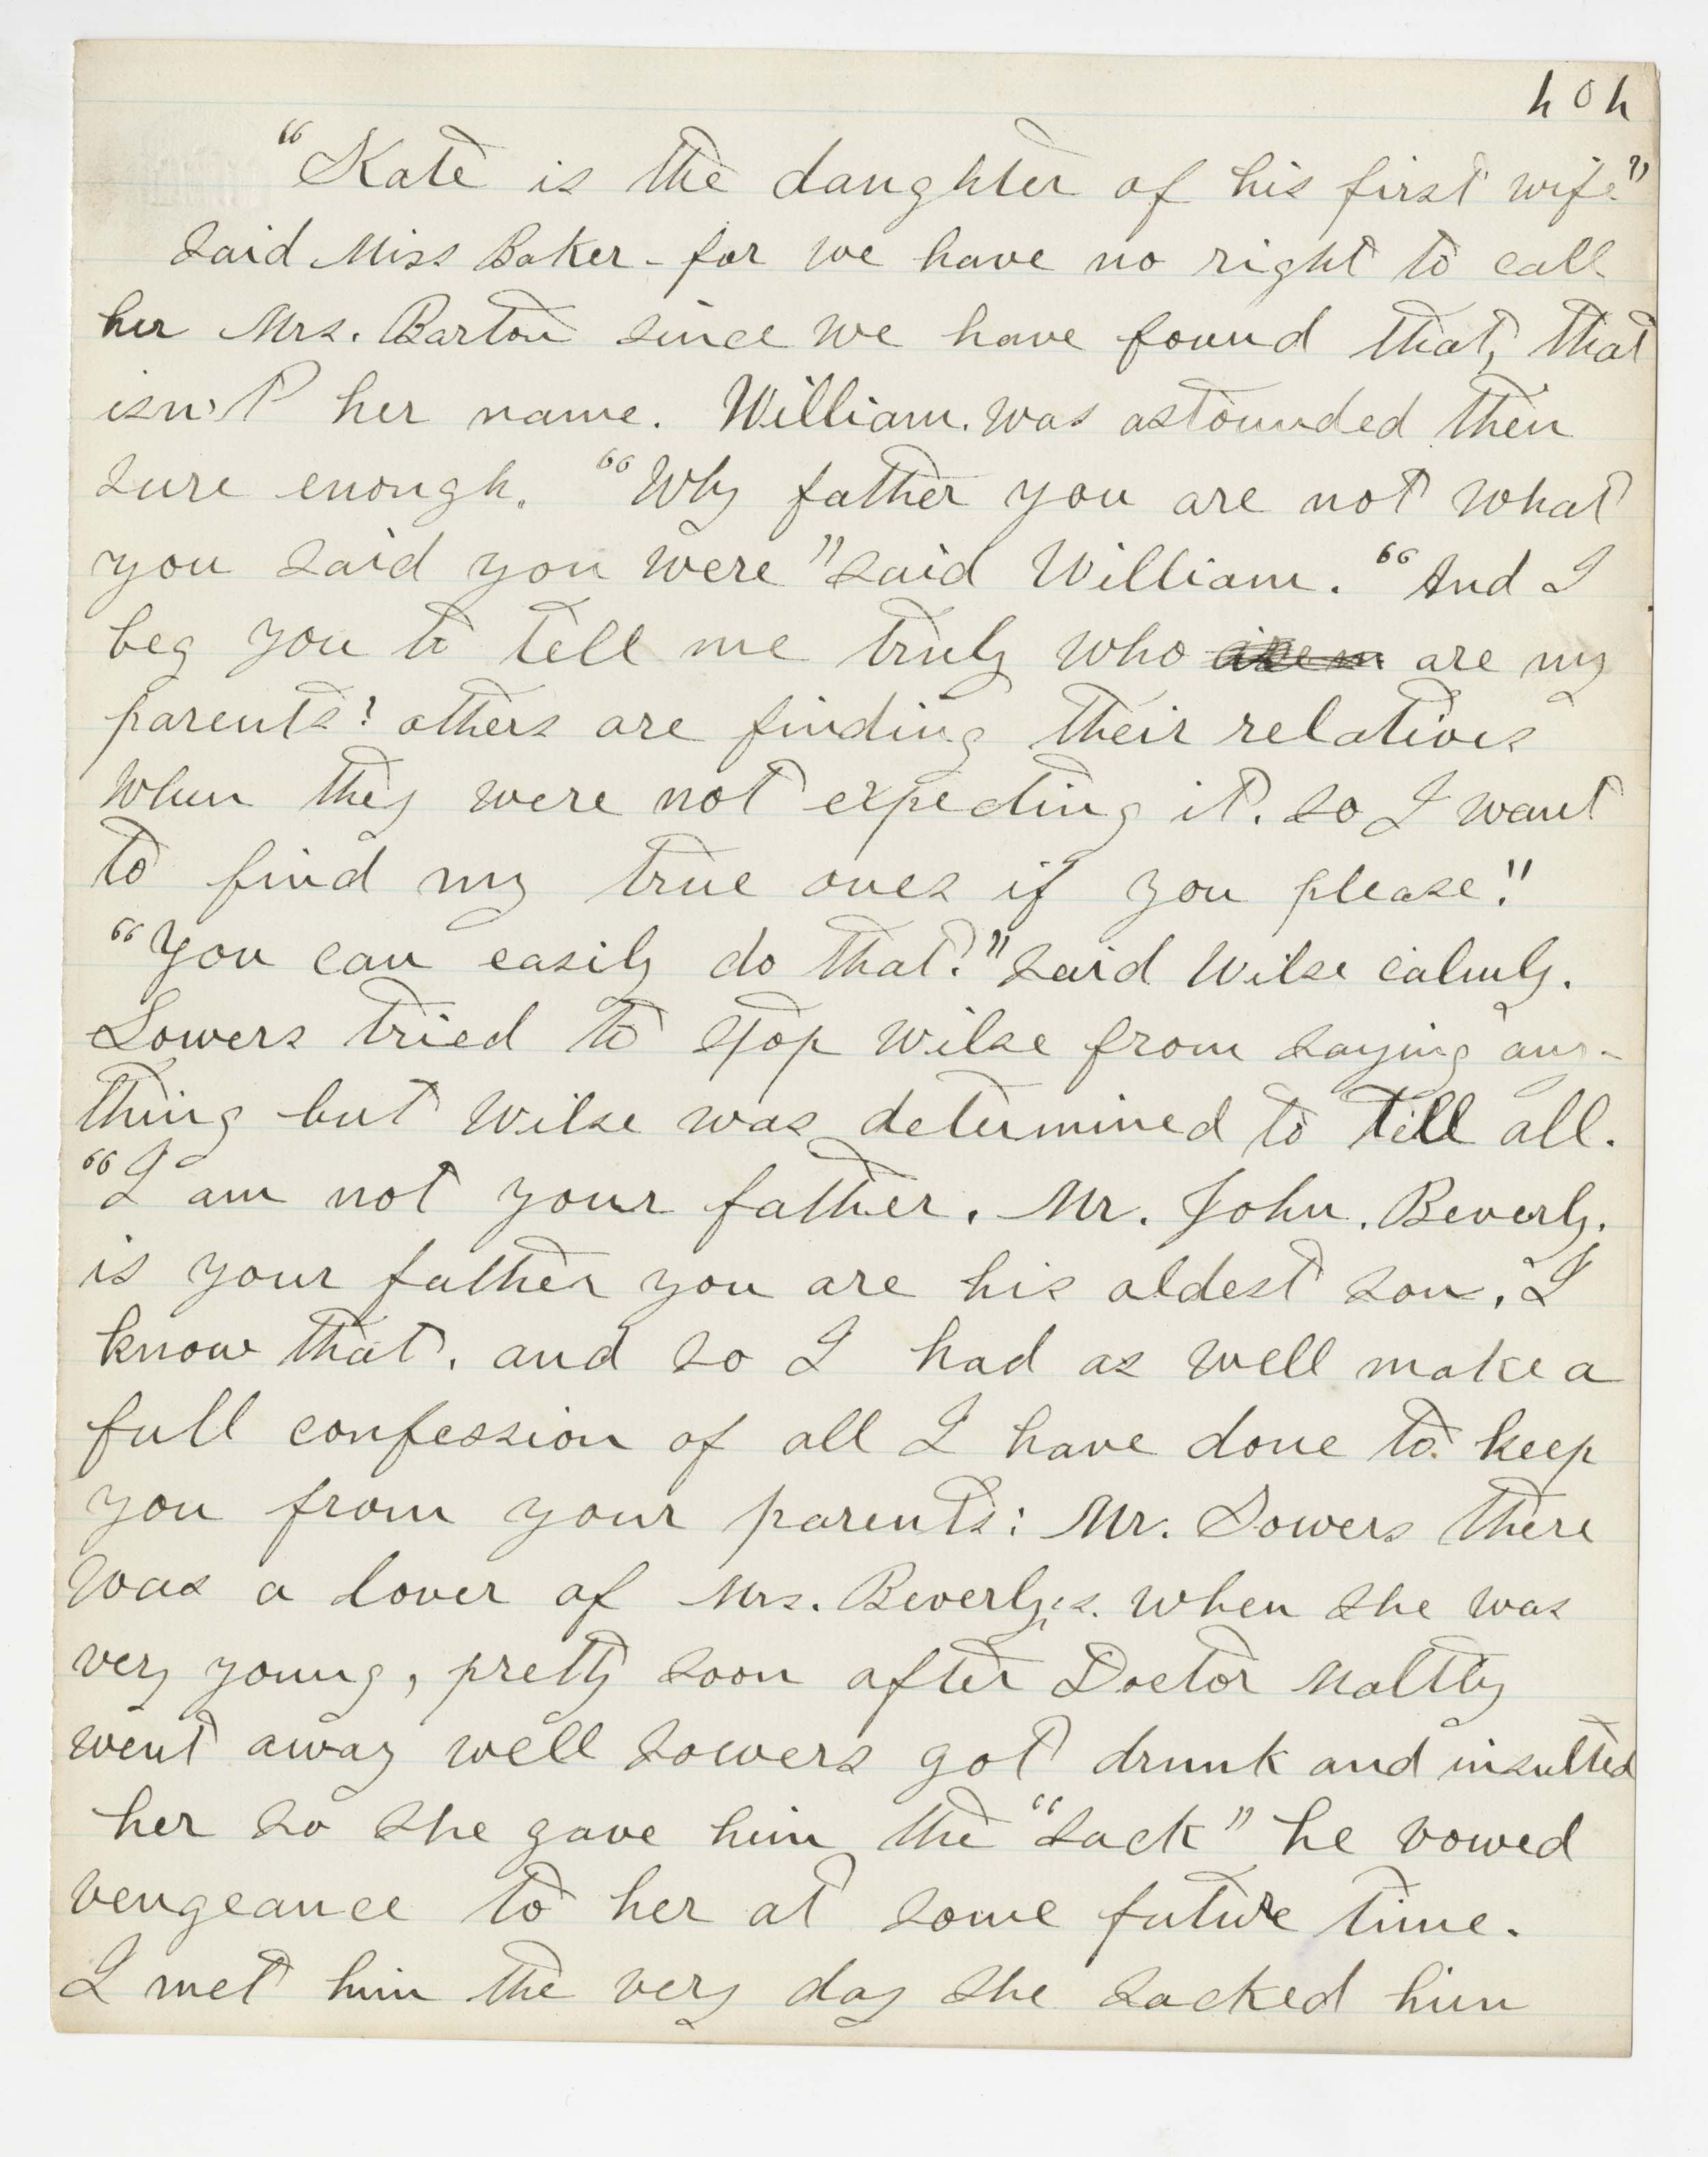 404
"Kate is the daughter of his first wife"
said Miss Baker - for we have no right to call
her Mrs. Barton since we have found that, that
isn't her name. William. was astounded then
sure enough. "Why father you are not what
you said you were" said William. "And I
beg you to tell me truly who are my
parents? others are finding their relatives
when they were not expecting it. so I want
to find my true ones if you please!"
"You can easily do that." said Wilse calmly.
Sowers tried to stop Wilse from saying any-
thing but Wilse was determined to tell all.
"I am not your father. Mr. John. Beverly.
is your father you are his oldest son. I
know that. and so I had as well make a
full confession of all I have done to keep
you from your parents: Mr. Sowers there
was a lover of Mrs. Beverly,s. when she was
very young, pretty soon after Doctor Maltby
went away well Sowers got drunk and insulted
her so she gave him the "sack" he vowed
vengeance to her at some future time.
I met him the very day she sacked him